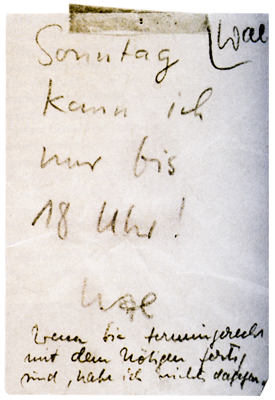 Sonntag
kann ich
nur bis
18 Uhr!
Wenn Sie termingerecht
mit dem Nötigen fertig
sind, habe ich nichts dagegen.